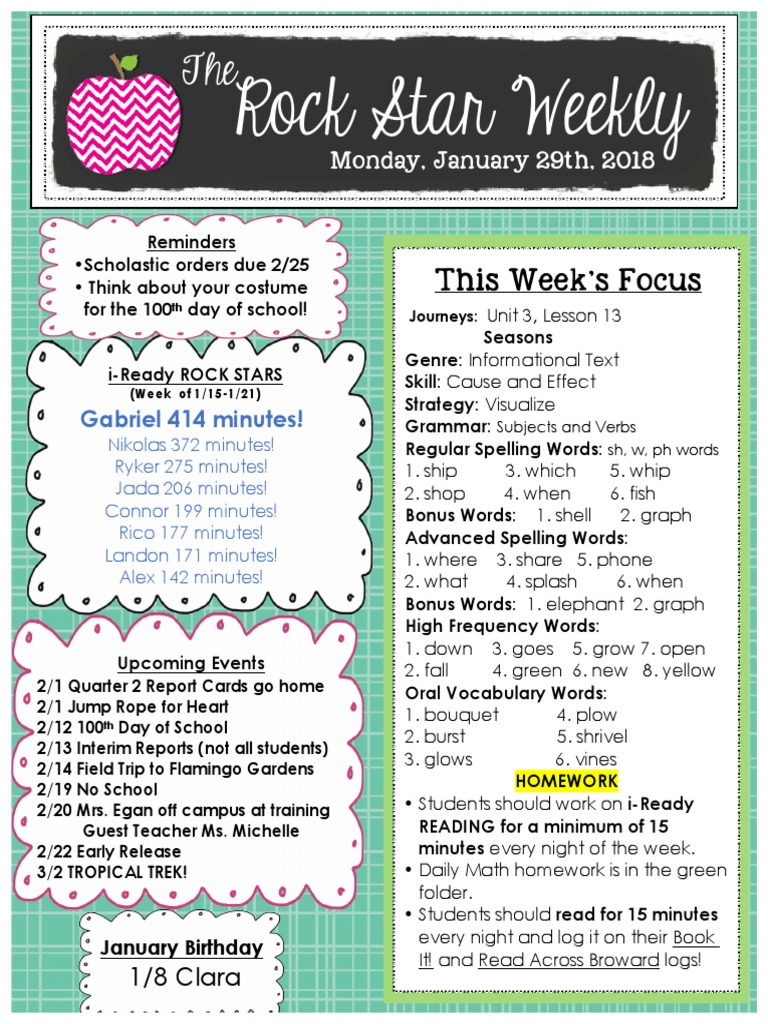 The
Rock Star Weekly
Monday, January 29th, 2018
Reminders
•Scholastic orders due 2/25
• Think about your costume
for the 100th day of school!
i-Ready ROCK STARS
(Week of 1/15-1/21)
Gabriel 414 minutes!
Nikolas 372 minutes!
Ryker 275 minutes!
Jada 206 minutes!
Connor 199 minutes!
Rico 177 minutes!
Landon 171 minutes!
Alex 142 minutes!
Upcoming Events
2/1 Quarter 2 Report Cards go home
2/1 Jump Rope for Heart
2/12 100th Day of School
2/13 Interim Reports (not all students)
2/14 Field Trip to Flamingo Gardens
2/19 No School
2/20 Mrs. Egan off campus at training
Guest Teacher Ms. Michelle
2/22 Early Release
3/2 TROPICAL TREK!
January Birthday
1/8 Clara
This Week's Focus
Journeys: Unit 3, Lesson 13
Seasons
Genre: Informational Text
Skill: Cause and Effect
Strategy: Visualize
Grammar: Subjects and Verbs
Regular Spelling Words: sh, w, ph words
1. ship 3. which 5. whip
2. shop 4. when 6. fish
Bonus Words: 1. shell 2. graph
Advanced Spelling Words:
1. where 3. share 5. phone
2. what 4. splash 6. when
Bonus Words: 1. elephant 2. graph
High Frequency Words:
1. down 3. goes 5. grow 7. open
2. fall 4. green 6. new 8. yellow
Oral Vocabulary Words:
1. bouquet 4. plow
2. burst 5. shrivel
3. glows 6. vines
HOMEWORK
• Students should work on i-Ready
READING for a minimum of 15
minutes every night of the week.
• Daily Math homework is in the green
folder.
• Students should read for 15 minutes
every night and log it on their Book
It! and Read Across Broward logs!